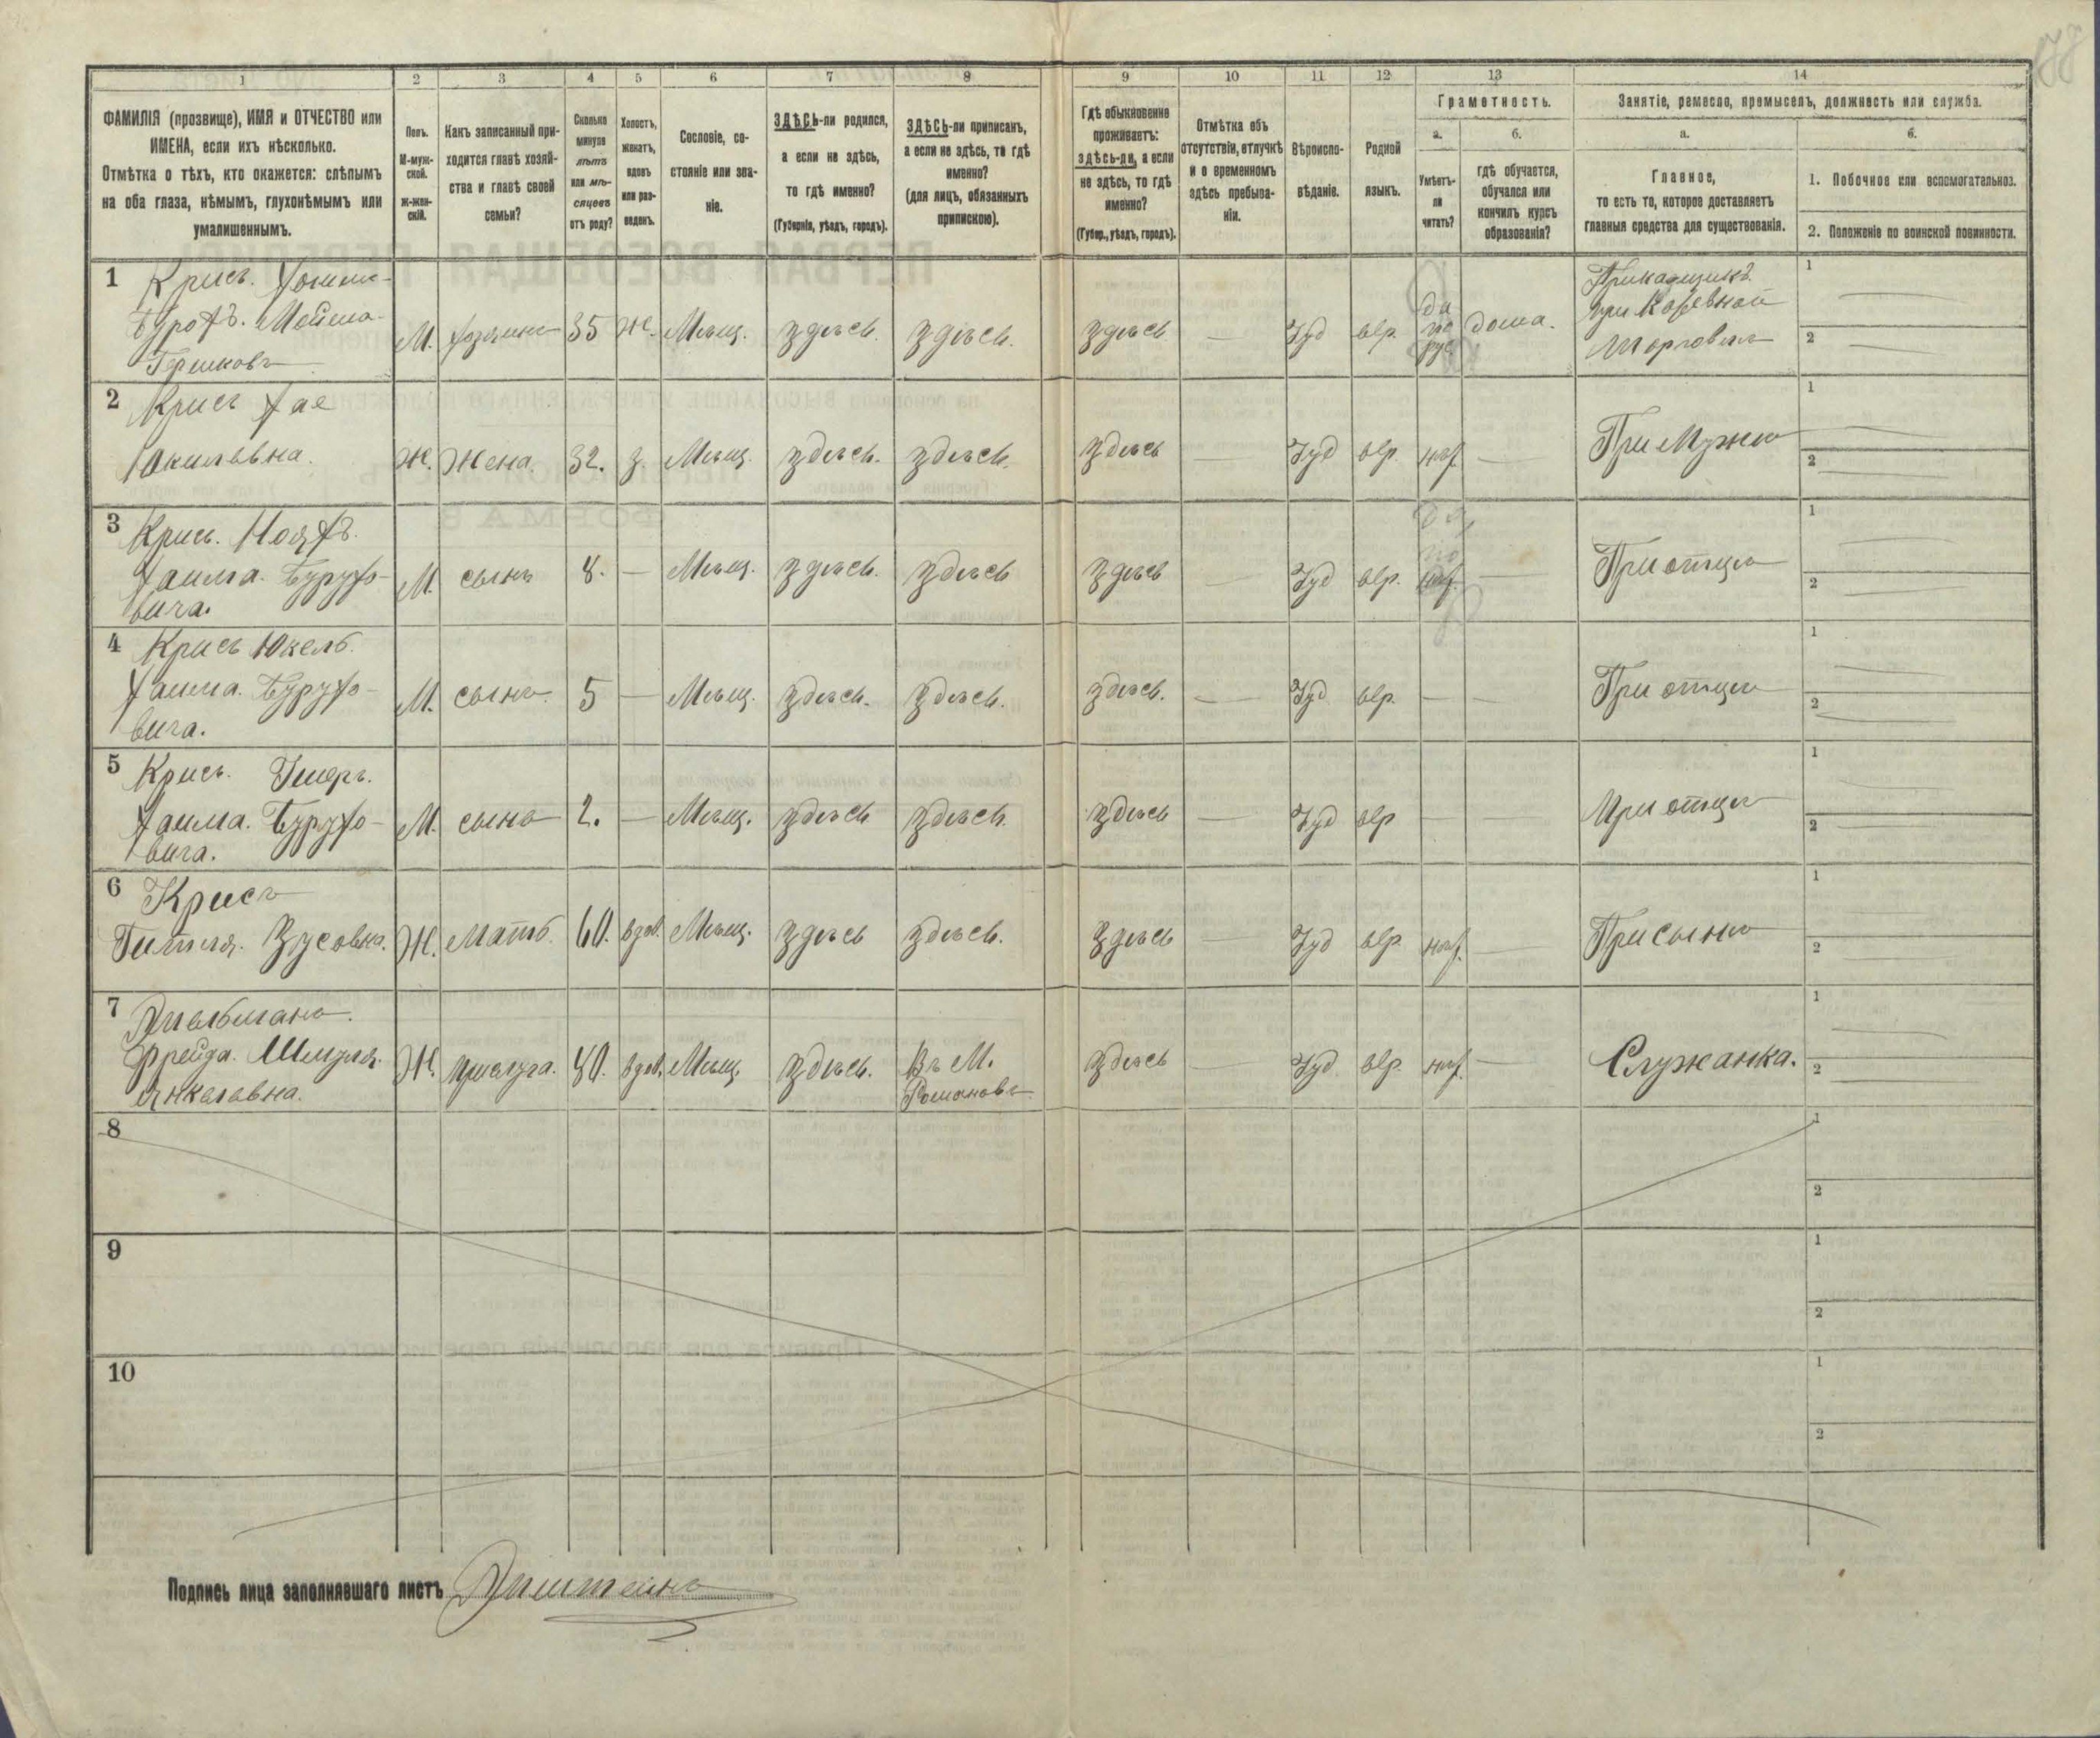 1 2 3 4 5 6 7 8 9 10 11 12 13 14
ФАМИЛІЯ (прозвище), ИМЯ и ОТЧЕСТВО или
ИМЕНА, если ихъ нѣсколько.
Отмѣтка о тѣхъ, кто окажется: слѣпымъ
на оба глаза, нѣмымъ, глухонѣмымъ или
умалишеннымъ.
Полъ.
М-муж-
ской.
Ж-жен-
скій.
Какъ записанный при-
ходится главѣ хозяй-
ства и главѣ своей
семьи?
Сколько
минуло
лѣтъ
или мѣ-
сяцевъ
отъ роду?
Холостъ,
женатъ,
вдовъ
или раз-
веденъ.
Сословіе, со-
стояніе или зва-
ніе.
ЗДѢСЬ-ли родился,
а если не здѣсь,
то гдѣ именно?
(Губернія, уѣздъ, городъ).
ЗДѢСЬ-ли приписанъ,
а если не здѣсь, то гдѣ
именно?
(для лицъ, обязанныхъ
припискою).
Гдѣ обыкновенно
проживаетъ:
здѣсь-ли, а если
не здѣсь, то гдѣ
именно?
(Губер., уѣздъ, городъ).
Отмѣтка объ
отсутствіи, отлучкѣ
и о временномъ
здѣсь пребыва-
ніи.
Вѣроиспо-
вѣданіе.
Родной
языкъ.
Грамотность.
а.
Умѣетъ-
ли
читать?
б.
гдѣ обучается,
обучался или
кончилъ курсъ
образованія?
Занятіе, ремесло, промыселъ, должность или служба.
а.
Главное,
то есть то, которое доставляетъ
главныя средства для существованія.
б.
1. Побочное или вспомогательное.
2. Положеніе по воинской повинности.
1 Крисъ.
Бурохъ. Мовша-
Гершковъ
М. хозяинъ 35 Ж. Мѣщ. здѣсь. здѣсь. здѣсь — Іуд евр. да по рус дома.
Прикащикъ
при
торговли
1
2
2 Крисъ Хае
Юкильвна.
Ж. Жена. 32. з. Мѣщ. здѣсь. здѣсь. здѣсь — Іуд евр. —
При Мужѣ
1
2
3 Крисъ.
Хаима. Бурухо-
вича.
М. сынъ 8. — Мѣщ. здѣсь. здѣсь здѣсь — Іуд евр. —
При отцѣ
1
2
4 Крисъ Юкель.
Хаима. Бурухо-
вича.
М. сынъ. 5 — Мѣщ. здѣсь. здѣсь. здѣсь. — Іуд евр. — —
При отцѣ
1
2
5 Крисъ.
Хаима. Бурухо-
вича.
М. сынъ 2. — Мѣщ. здѣсь здѣсь. здѣсь — Іуд евр — —
При отцѣ
1
2
6 Крисъ
Гитля. Зусовна.
Ж. мать. 60. вдов. Мѣщ. здѣсь здѣсь. здѣсь — Іуд евр. —
При сынѣ
1
2
7
Фрейда. Шмуля.
Янкелевна.
Ж. прислуга. вдов. Мѣщ. здѣсь. Въ М.
Романовъ
здѣсь — Іуд евр. —
Служанка.
1
2
8
1
2
9
1
2
10
1
2
Подпись лица заполнявшаго листъ